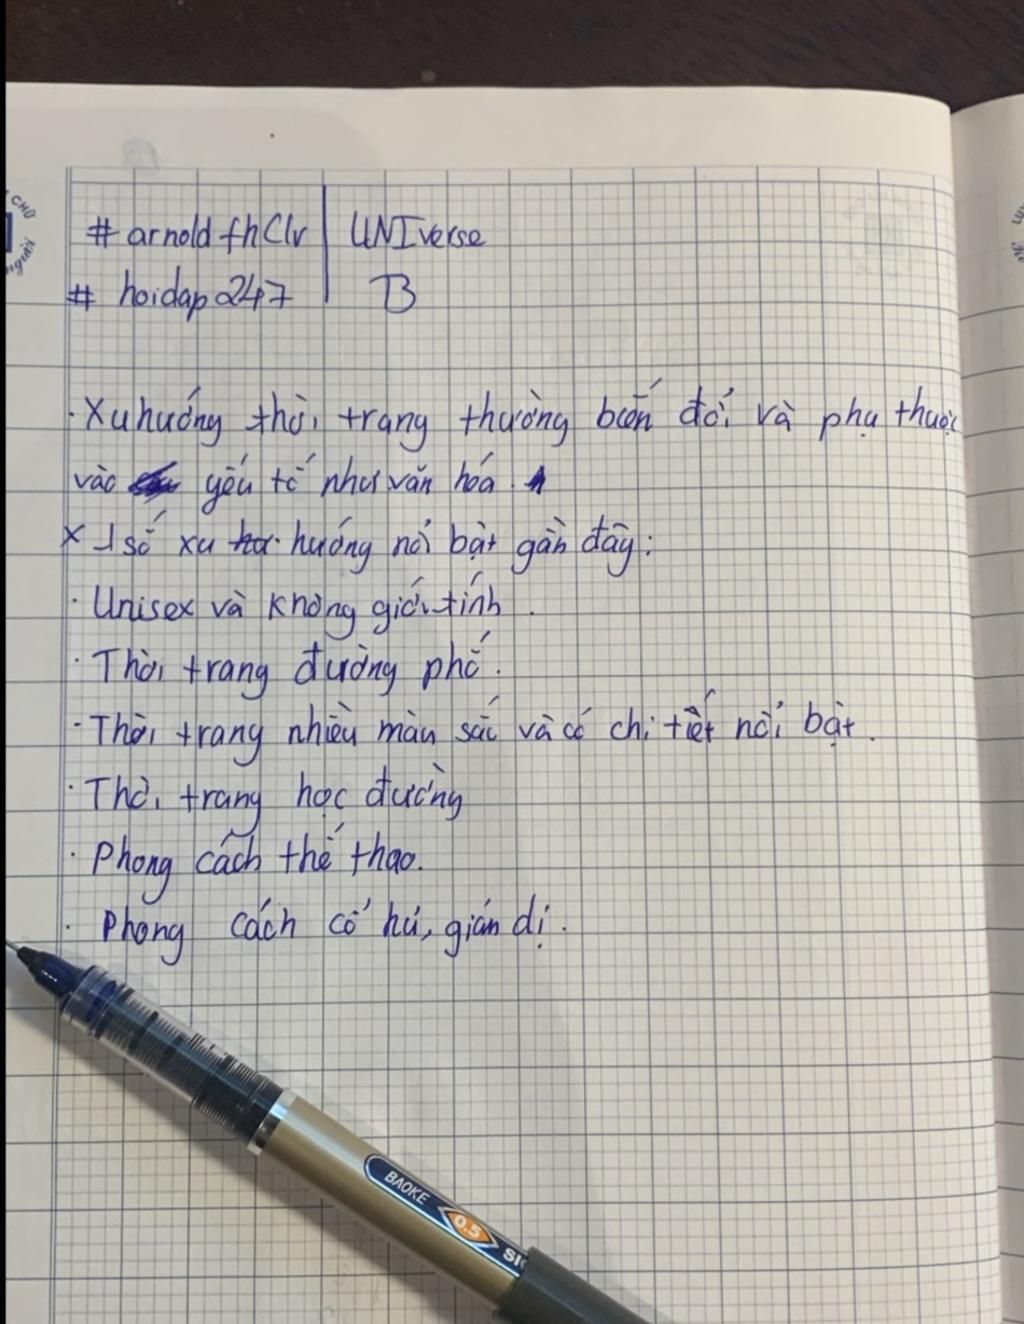 #arnoldfhClv | UNIverse
# hoidap247 | B
· Xu hướng thời trang thường biến đổi và phụ thuộc
vào yếu tố như văn hóa.
X 1 số xu hướng nổi bật gần đây:
· Unisex và không giới tính.
· Thời trang đường phố.
· Thời trang nhiều màu sắc và có chi tiết nổi bật.
· Thời trang học đường
· Phong cách thể thao.
· Phong cách cổ hủ, giản dị.
BAOKE
0.5